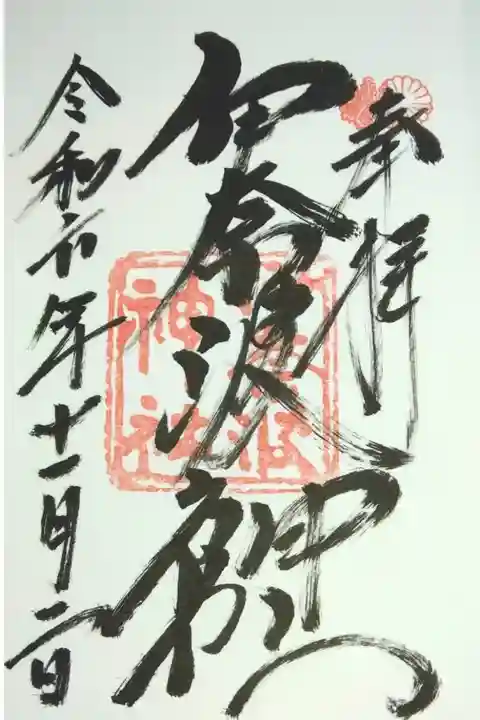 奉拝
伊奈波神社
伊奈波
神社
令和六年十一月二日